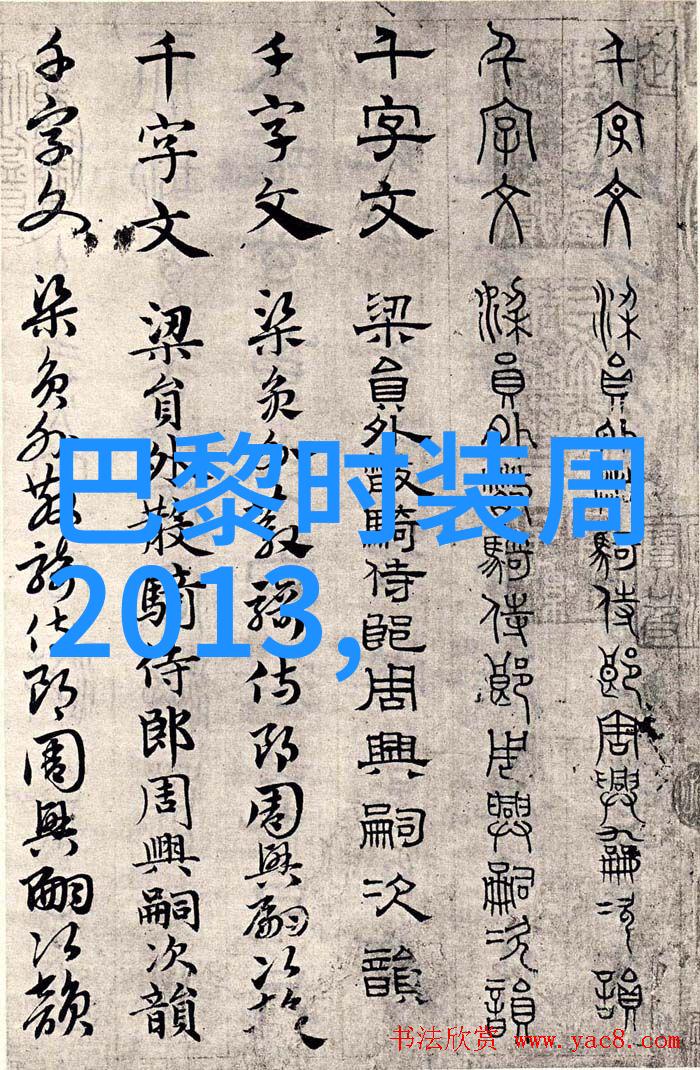 千字文 梁員外散騎侍郎周興嗣次韻
千字文 梁員外散騎侍郎周興嗣次韻
千字文 梁員外散騎侍郎周興嗣次韻
千字文 梁員外散騎侍郎周興嗣次韻
千字文 梁員外散騎侍郎周興嗣次韻
千字文 梁員外散騎侍郎周興嗣次韻
巴黎时装周
2013,
书法欣赏 www.yac8.com